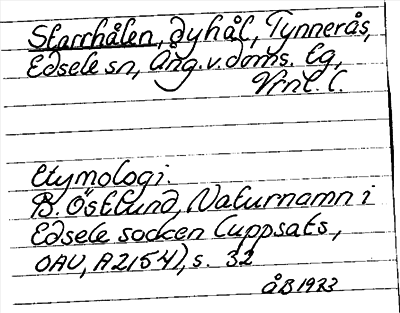 Starrhålen, dyhål, Tynnerås,
Edsele sn, Ång.v.doms. lg,
Vrnl. l.
Etymologi.
B. Östlund, Naturnamn i
Edsele socken (uppsats,
OAU, A2154), s. 32
ÅB 1933